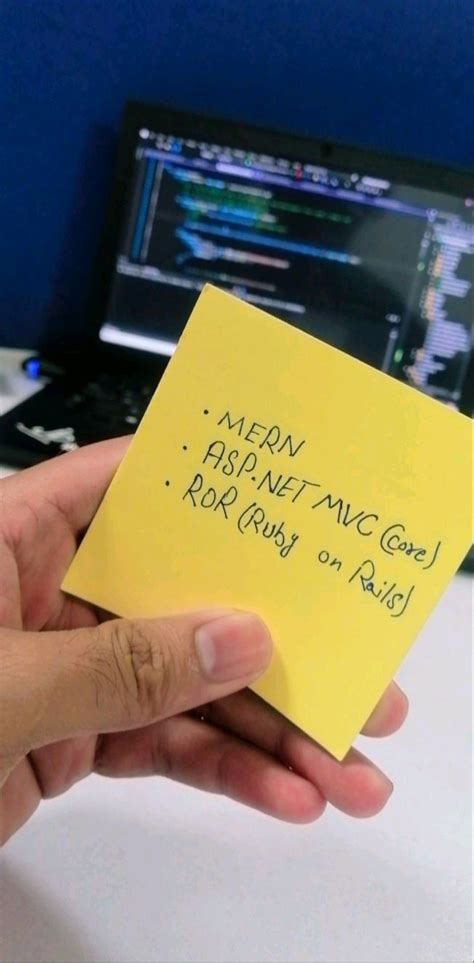 • MERN
• ASP.NET MVC (Core)
• ROR (Ruby on Rails)